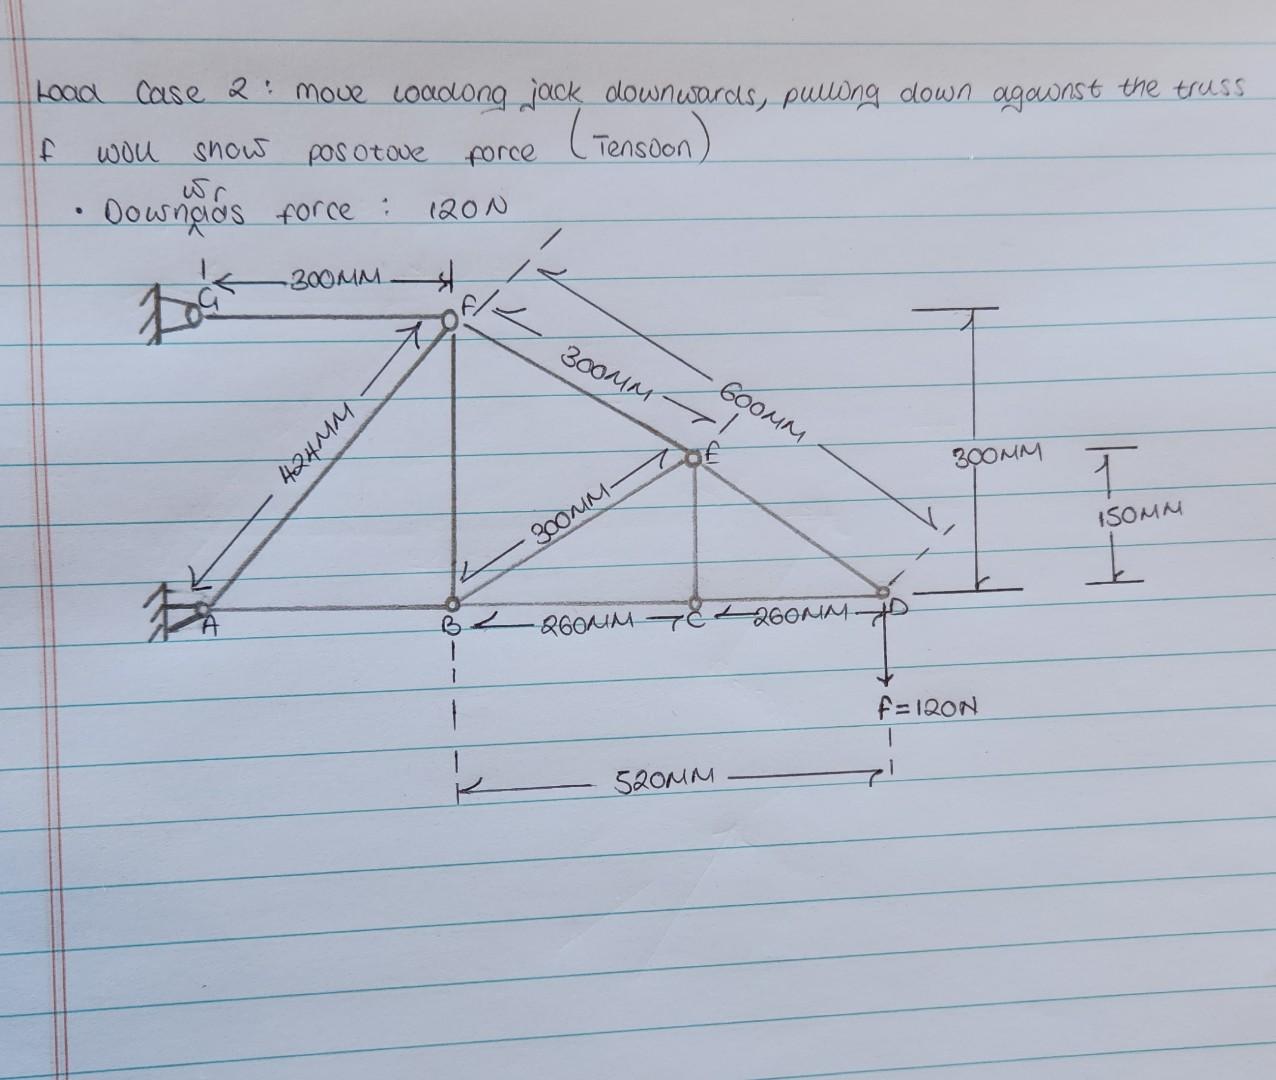 Load Case 2: move loading jack downwards, pulling down against the truss
F will show positive force (Tension)
• Downwards force: 120N
300MM
G
F
300MM
600MM
424MM
E
300MM
300MM
150MM
A
B
260MM
C
260MM
D
F=120N
520MM